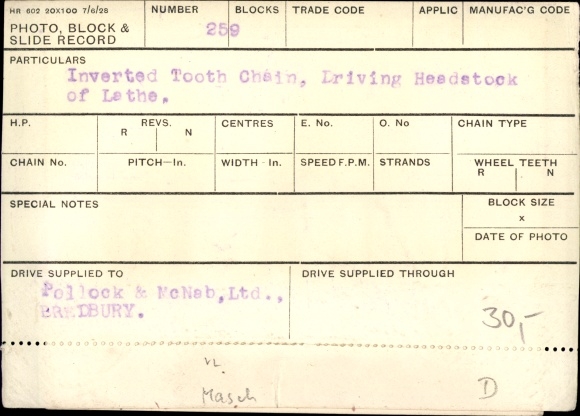 HR 602 20X100 7/6/28
PHOTO, BLOCK & SLIDE RECORD
NUMBER 259
BLOCKS
TRADE CODE
APPLIC
MANUFAC'G CODE
PARTICULARS
Inverted Tooth Chain, Driving Headstock
of Lathe.
H.P.
REVS.
R N
CENTRES
E. No.
O. No
CHAIN TYPE
CHAIN No.
PITCH—In.
WIDTH - In.
SPEED F.P.M.
STRANDS
WHEEL TEETH
R N
SPECIAL NOTES
BLOCK SIZE
x
DATE OF PHOTO
DRIVE SUPPLIED TO
DRIVE SUPPLIED THROUGH
Pollock & McNab, Ltd.,
BREDBURY.
30,-
Masch
D